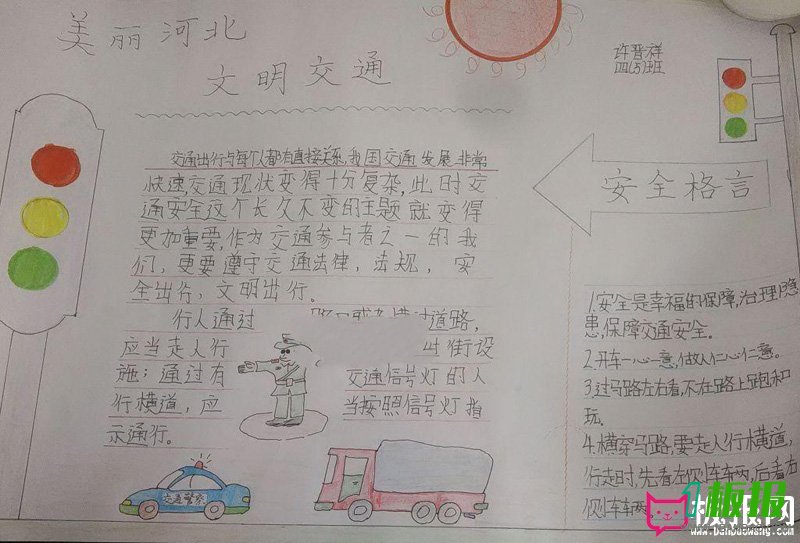 美丽河北
文明交通
许晋祥
四(5)班
交通出行与每个人都有直接关系,我国交通发展非常
快速,交通现状变得十分复杂,此时交
通安全这个长久不变的主题就变得
更加重要,作为交通参与者之一的我
们,更要遵守交通法律,法规,实
全出行,文明出行。
行人通过
道路,
应当走人行
街设
施;通过有
交通信号灯的人
行横道,应
当按照信号灯指
示通行。
交通警察
安全格言
1.安全是幸福的保障,治理隐
患,保障交通安全。
2.开车一心一意,做人仁心仁意。
3.过马路左右看,不在路上跑和
玩。
4.横穿马路,要走人行横道,
行走时,先看左侧车车辆,后看右
侧车车辆
板报网
www.banbaowang.com